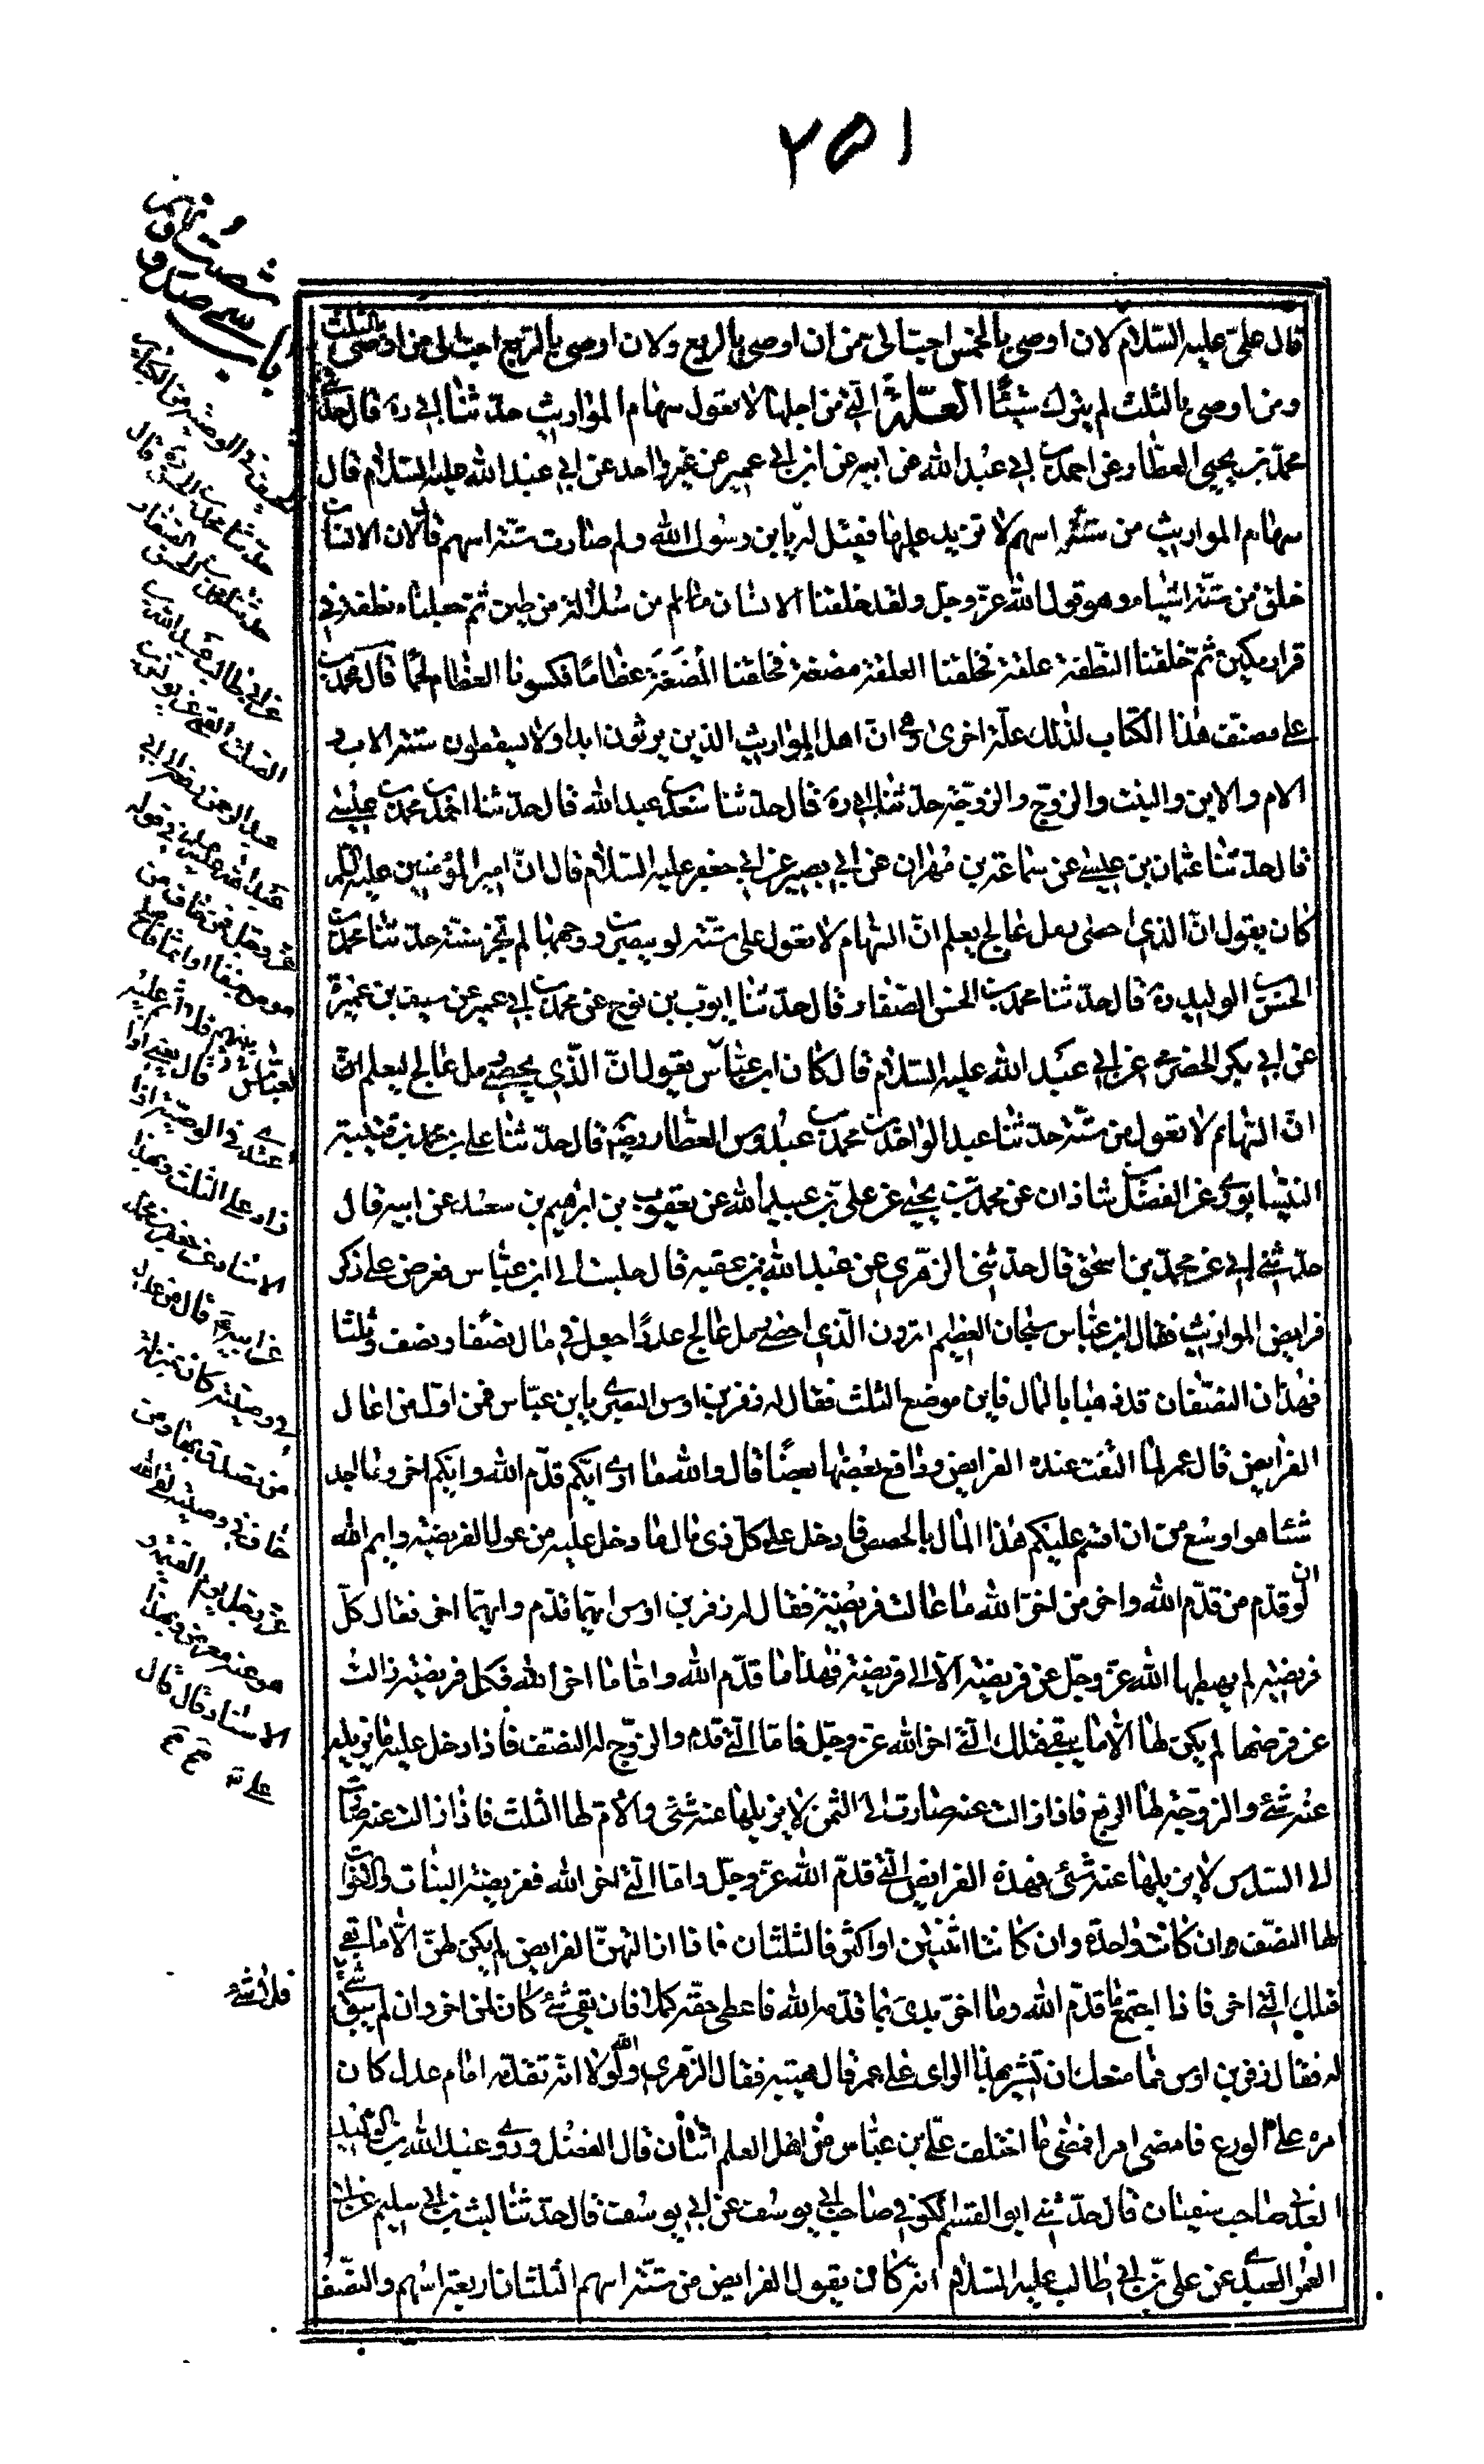 ٢٥١
قال علیّ علیه السّلام لان اوصی بالخمس احبّ الیّ من ان اوصی بالربع ولان اوصی بالرّبع احبّ الی من ان اوصی بالثلث
ومن اوصی بالثلث لم یترك شیئًا العلّة الّتی من اجلها لا تعول سهام المواریث حدّثنا ابی ره قال حدّثنی
محمّد بن یحیی العطّار عن احمد بن ابی عبد الله عن ابیه عن ابن ابی عمیر عن غیر واحد عن ابی عبد الله علیه السّلام قال
سهام المواریث من ستّة اسهم لا تزید علیها فقیل له یا بن رسول الله ولم صارت ستّة اسهم قال لان الانسان
خلق من ستّة اشیاء وهو قول الله عزّ وجلّ ولقد خلقنا الانسان من سلالة من طین ثمّ جعلناه نطفة فی
قرار مکین ثمّ خلقنا النّطفة علقة فخلقنا العلقة مضغة فخلقنا المُضغَة عظامًا فکسونا العظام لحمًا قال محمد بن
علی مصنّف هذا الکتاب لذلك علّة اخری وهی انّ اهل المواریث الذین یرثون ابدا ولا یسقطون ستّة الاب و
الام والابن والبنت والزوج والزوجة حدّثنا ابی ره قال حدثنا سعد بن عبد الله قال حدّثنا احمد بن محمد بن عیسی
قال حدّثنا عثمان بن عیسی عن سماعة بن مهران عن ابی بصیر عن ابی جعفر علیه السّلام قال انّ امیر المؤمنین علیه السّلم
کان یقول انّ الذی احصی رمل عالج یعلم انّ السّهام لا تعول علی ستّة لو یبصرون وجهها لم تجز ستّة حدّثنا محمد بن
الحسن بن الولید ره قال حدّثنا محمد بن الحسن الصّفار قال حدّثنا ایوّب بن نوح عن محمد بن ابی عمیر عن سیف بن عمیرة
عن ابی بکر الحضرمی عن ابی عبد الله علیه السّلام قال کان ابن عبّاس یقول انّ الّذی یحصی رمل عالج لیعلم انّ
انّ السّهام لا تعول من ستّة حدّثنا عبد الواحد بن محمد بن عبدوس العطّار رضی قال حدّثنا علی بن محمد بن قتیبة
النیشابوری عن الفضل بن شاذان عن محمد بن یحیی عن علیّ بن عبد الله عن یعقوب بن ابرهیم بن سعد عن ابیه قال
حدّثنی ابی عن محمّد بن اسحق قال حدّثنی الزهری عن عبد الله بن عقبه قال جلست الی ابن عبّاس فعرض علی ذکر
فرایض المواریث فقال ابن عبّاس سبحان العظیم اترون الّذی احصی رمل عالج عددًا جعل فی مال نصفًا ونصف وثلثا
فهذان النصّفان قد ذهبا بالمال فاین موضع الثلث فقال له زفر بن اوس البصری یا بن عبّاس فمن اوّل من اعال
الفرایض قال عمر لمّا التفت عنده الفرایض ودافع بعضها بعضًا قال والله ما ادری ایّکم قدّم الله وایّکم اخر وما اجد
شئا هو اوسع من ان اقسم علیکم هذا المال بالحصص فادخل علی کلّ ذی مال ما دخل علیه من عول الفریضة وایم الله
ان لو قدّم من قدّم الله واخر من اخّر الله ما عالت فریضة فقال له زفر بن اوس ایّهما قدّم وایهما اخر فقال کلّ
فریضة لم یهبطها الله عزّ وجلّ عن فریضة الا الی فریضة فهذا ما قدّم الله وامّا ما اخر الله فکل فریضة زالت
عن فرضها لم یکن لها الا ما بقی فتلك الّتی اخر الله عزّ وجلّ فامّا الّتی قدم والزوّج له النصف فاذا دخل علیه ما یزیله
عنه شئ والزوجة لها الربع فاذا زالت عنه صارت الی الثمن لا یزیلها عنه شئ والام لها الثلث فاذا زالت عنه صارت
الی السّدس لا یزیلها عنه شئ فهذه الفرایض الّتی قدّم الله عزّ وجلّ وامّا الّتی اخر الله ففریضة البنات والاخوات
لها النصّف ان کانت واحدة وان کانتا اثنتین او اکثر فالثلثان فاذا ازالتهنّ الفرایض لم یکن لهنّ الّا ما بقی
فتلك الّتی اخر فاذا اجتمع ما قدّم الله وما اخّر بدئ بما قدّمه الله فاعطی حقّه کملا فان بقی شئ کان لمن اخر وان لم یبق شئ
له فقال زفر بن اوس فما منعك ان تشیر بهذا الرای علی عمر قال هیبته فقال الزّهری والله لولا انّه تقدّمه امام عدل کان
امره علی الورع فامضی امرا فمضی ما اختلف علی بن عبّاس من اهل العلم اثنان قال الفضل وروی عبد الله بن الولید
العدنی صاحب سفیان قال حدّثنی ابو القسم الکوفی صاحب ابی یوسف عن ابی یوسف قال حدّثنا لیث بن ابی سلیم عن ابی
العمر العبدی عن علی بن ابی طالب علیه السّلام انّه کان یقول الفرایض من ستّة اسهم الثلثان اربعة اسهم والنصّف
باب سی صد و
شصت و نهم
عن ابی طالب عبد الله بن
الصلت القمی عن یونس بن
عبد الرحمن
زاد علی الثلث وبهذا
الاسناد عن جعفر بن محمد
عن ابیه ع قال من عدل
فی وصیّته کان بمنزلة
من تصدق بها ومن
خاف فی وصیته لقی الله
عزّ وجل یوم القیمة و
هو عنه معرض وبهذا
الاسناد قال قال
علی
فلا شئ